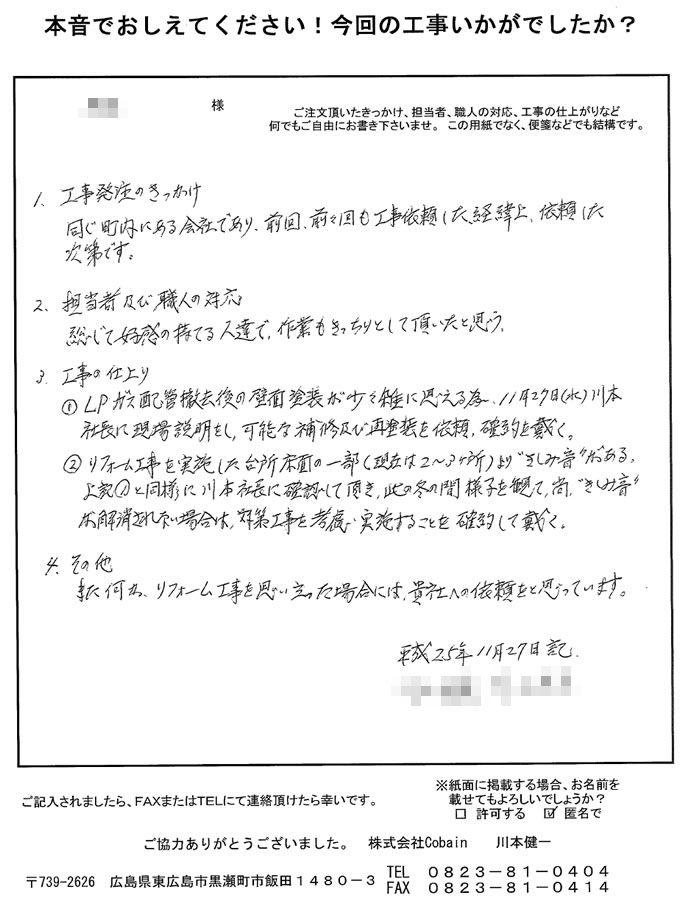 本音でおしえてください！今回の工事いかがでしたか？
様
ご注文頂いたきっかけ、担当者、職人の対応、工事の仕上がりなど
何でもご自由にお書き下さいませ。この用紙でなく、便箋などでも結構です。
1. 工事発注のきっかけ
同じ町内にある会社であり、前回、前々回も工事依頼した経緯上、依頼した
次第です。
2. 担当者及び職人の対応
総じて好感の持てる人達で、作業もきっちりとして頂いたと思う。
3. 工事の仕上り
① LPガス配管撤去後の壁面塗装が少々雑に思える為、11月27日(水)川本
社長に現場説明をし、可能な補修及び再塗装を依頼、確約を戴く。
② リフォーム工事を実施した台所床面の一部(現在は2〜3ヶ所)より"きしみ音"がある。
上記①と同様に川本社長に確認して頂き、此の冬の間様子を観て、尚、"きしみ音"
が解消されない場合は、対策工事を考慮い実施することを確約して戴く。
4. その他
また何か、リフォーム工事を思い立った場合には、貴社への依頼をと思っています。
平成25年11月27日記.
ご記入されましたら、FAXまたはTELにて連絡頂けたら幸いです。
※紙面に掲載する場合、お名前を
載せてもよろしいでしょうか？
□ 許可する ☑ 匿名で
ご協力ありがとうございました。 株式会社Cobain 川本健一
〒739-2626 広島県東広島市黒瀬町市飯田1480-3
TEL 0823-81-0404
FAX 0823-81-0414